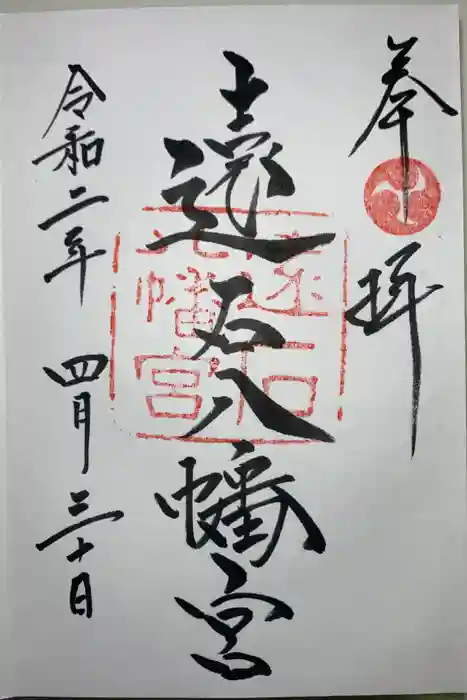 奉拝
遠石八幡宮
遠石八幡宮
令和二年 四月 三十日